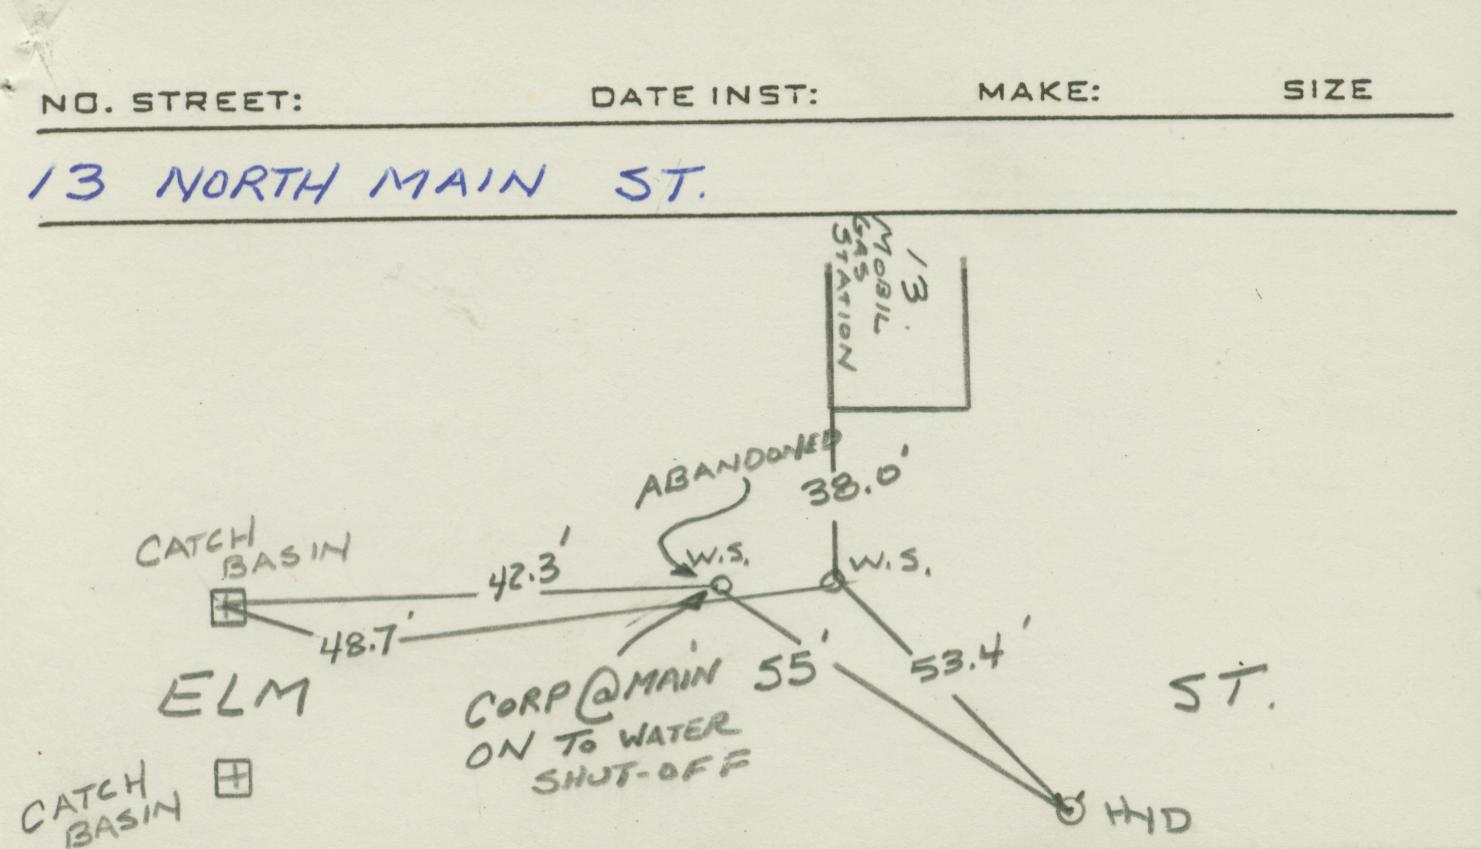 NO. STREET: DATE INST: MAKE: SIZE
13 NORTH MAIN ST.
13
MOBIL
GAS
STATION
ABANDONED
38.0'
CATCH
BASIN
42.3'
W.S.
W.S.
48.7'
ELM
CORP @ MAIN
ON TO WATER
SHUT-OFF
55'
53.4'
ST.
CATCH
BASIN
HYD